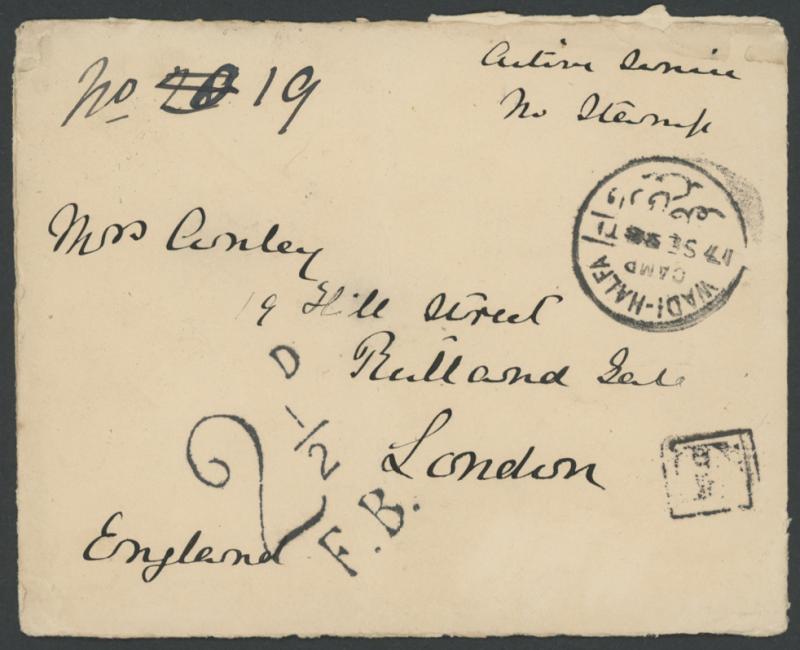 Active Service
No Stamps
No 20 19
Mrs Conley
19 Hill Street
Rutland Gate
London
England
2 1/2 D
F.B.
WADI-HALFA
CAMP
17 SE 98 T1
وادي حلفا